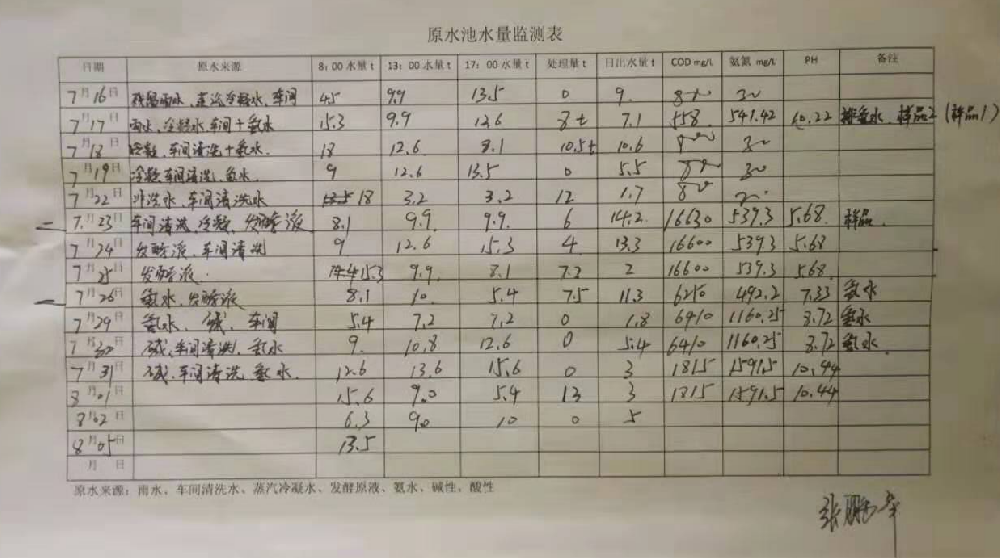 原水池水量监测表
日期 原水来源 8：00水量t 13：00水量t 17：00水量t 处理量t 日出水量t COD mg/L 氨氮 mg/L PH 备注
7月16日 雨水、蒸汽冷凝水、车间 45 9.9 13.5 0 9. 800 30
7月17日 雨水、冷凝水、车间+氨水 15.3 9.9 12.6 8t 7.1 558 541.42 10.22 氨水、样品2(样品1)
7月18日 冷凝、车间清洗+氨水. 18 12.6 8.1 10.5t 10.6 800 30
7月19日 冷凝车间清洗、氨水. 9 12.6 13.5 0 5.5 800 30
7月22日 车间清洗水 18 3.2 3.2 12 1.7 800
7.月23日 车间清洗、冷凝、发酵液 8.1 9.9 9.9. 6 14.2. 16630 539.3 5.68. 样品.
7月24日 发酵液、车间清洗 9 12.6 15.3 4 13.3 16600 539.3 5.68
7月25日 发酵液. 15.3 9.9. 8.1 7.2 2 16600 539.3 5.68.
7月26日 氨水、发酵液 8.1 10. 5.4 7.5 11.3 6210 492.2 7.33 氨水
7月29日 氨水、碱、车间 5.4 7.2 7.2 0 1.8 6410 1160.25 8.72 氨水
7月30日 碱、车间清洗、氨水 9. 10.8 12.6 0 5.4 6410 1160.25 8.72 氨水
7月31日 碱、车间清洗、氨水. 12.6 13.6 15.6 0 3 1815 1591.5 10.44
8月01日 15.6 9.0 5.4 13 3 1815 1591.5 10.44
8月02日 6.3 9.0 10 0 5
8月05日 13.5
月 日
原水来源：雨水、车间清洗水、蒸汽冷凝水、发酵原液、氨水、碱性、酸性